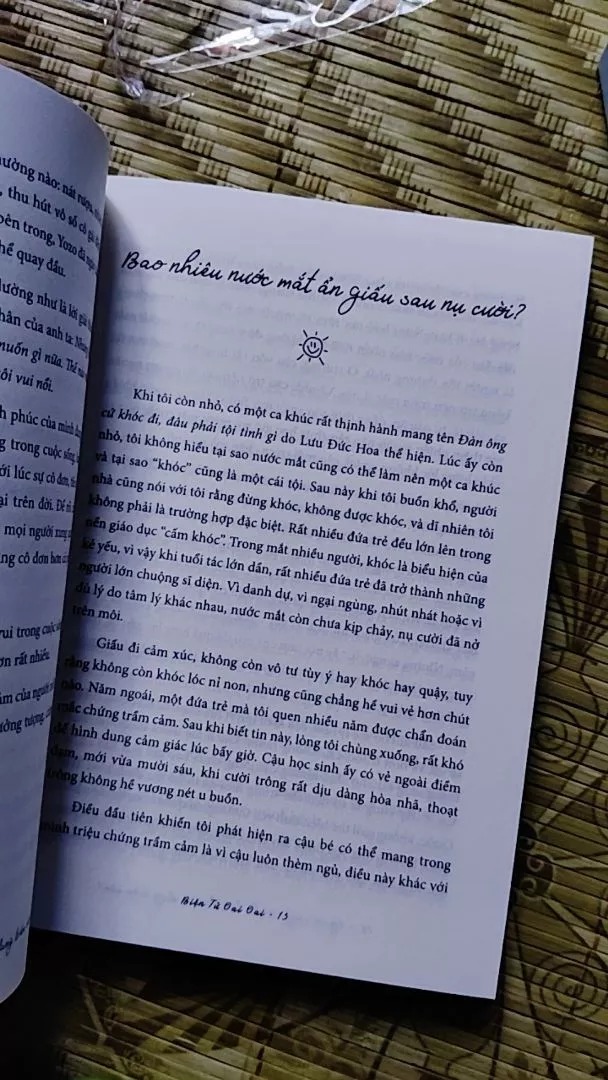 hường nào: nát rượu,
, thu hút vô số cô gái
bên trong, Yozo đã
hể quay đầu.
lường như là lời giã
hân của anh ta:
muốn gì nữa. Thế
ôi vui nổi.
h phúc của mình
g trong cuộc sống,
ới lúc sự cô đơn,
ại trên đời. Để
mọi người mang
ng cô đơn hơn
rui trong cuộc
ơn rất nhiều.
ăm của người
ưởng tượng
Bao nhiêu nước mắt ẩn giấu sau nụ cười?
Khi tôi còn nhỏ, có một ca khúc rất thịnh hành mang tên Đàn ông
cứ khóc đi, đâu phải tội tình gì do Lưu Đức Hoa thể hiện. Lúc ấy còn
nhỏ, tôi không hiểu tại sao nước mắt cũng có thể làm nên một ca khúc
và tại sao “khóc” cũng là một cái tội. Sau này khi tôi buồn khổ, người
nhà cũng nói với tôi rằng đừng khóc, không được khóc, và dĩ nhiên tôi
không phải là trường hợp đặc biệt. Rất nhiều đứa trẻ đều lớn lên trong
nền giáo dục “cấm khóc”. Trong mắt nhiều người, khóc là biểu hiện của
kẻ yếu, vì vậy khi tuổi tác lớn dần, rất nhiều đứa trẻ đã trở thành những
người lớn chuộng sĩ diện. Vì danh dự, vì ngại ngùng, nhút nhát hoặc vì
đủ lý do tâm lý khác nhau, nước mắt còn chưa kịp chảy, nụ cười đã nở
trên môi.
Giấu đi cảm xúc, không còn vô tư tùy ý hay khóc hay quậy, tuy
rằng không còn khóc lóc nỉ non, nhưng cũng chẳng hề vui vẻ hơn chút
nào. Năm ngoái, một đứa trẻ mà tôi quen nhiều năm được chẩn đoán
mắc chứng trầm cảm. Sau khi biết tin này, lòng tôi chùng xuống, rất khó
để hình dung cảm giác lúc bấy giờ. Cậu học sinh ấy có vẻ ngoài điềm
đạm, mới vừa mười sáu, khi cười trông rất dịu dàng hòa nhã, thoạt
trông không hề vương nét u buồn.
Điều đầu tiên khiến tôi phát hiện ra cậu bé có thể mang trong
mình triệu chứng trầm cảm là vì cậu luôn thèm ngủ, điều này khác với
Biện Tử Đại Đại - 15